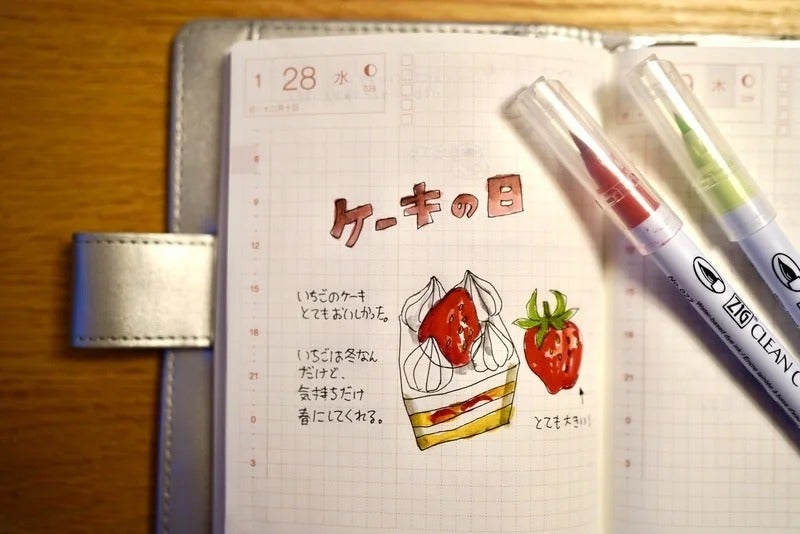 1 28 水
028
旧・十二月十日
9 木
6
9
12
15
18
21
0
3
ケーキの日
いちごのケーキ
とてもおいしかった。
いちごは冬なん
だけど、
気持ちだけ
春にしてくれる。
とても大きい!
ZIG CLEAN C
ZIG